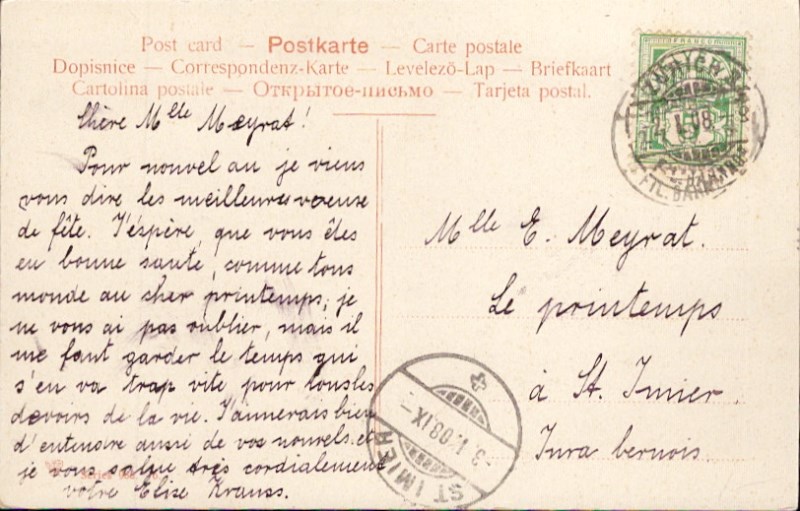 Post card — Postkarte — Carte postale
Dopisnice — Correspondenz-Karte — Levelezõ-Lap — Briefkaart
Cartolina postale — Открытое-письмо — Tarjeta postal.
Chère Mlle Meyrat!
Pour nouvel an je viens
vous dire les meilleures voeuse
de fête. J'éspère, que vous êtes
en bonne santé, comme tous
monde au cher printemps, je
ne vous ai pas oublier, mais il
me faut garder le temps qui
s'en va trap vite pour tousles
devoirs de la vie. J'aimerais bien
d'entendre aussi de vos nouvels. et
je vous salue très cordialement
votre Elise Krauss.
FRANCO
ZÜRICH
I.08
FIL. BAHNHOF
Mlle E. Meyrat.
Le printemps
à St. Imier.
Jura bernois.
-3.I.08.IX-
ST IMIER